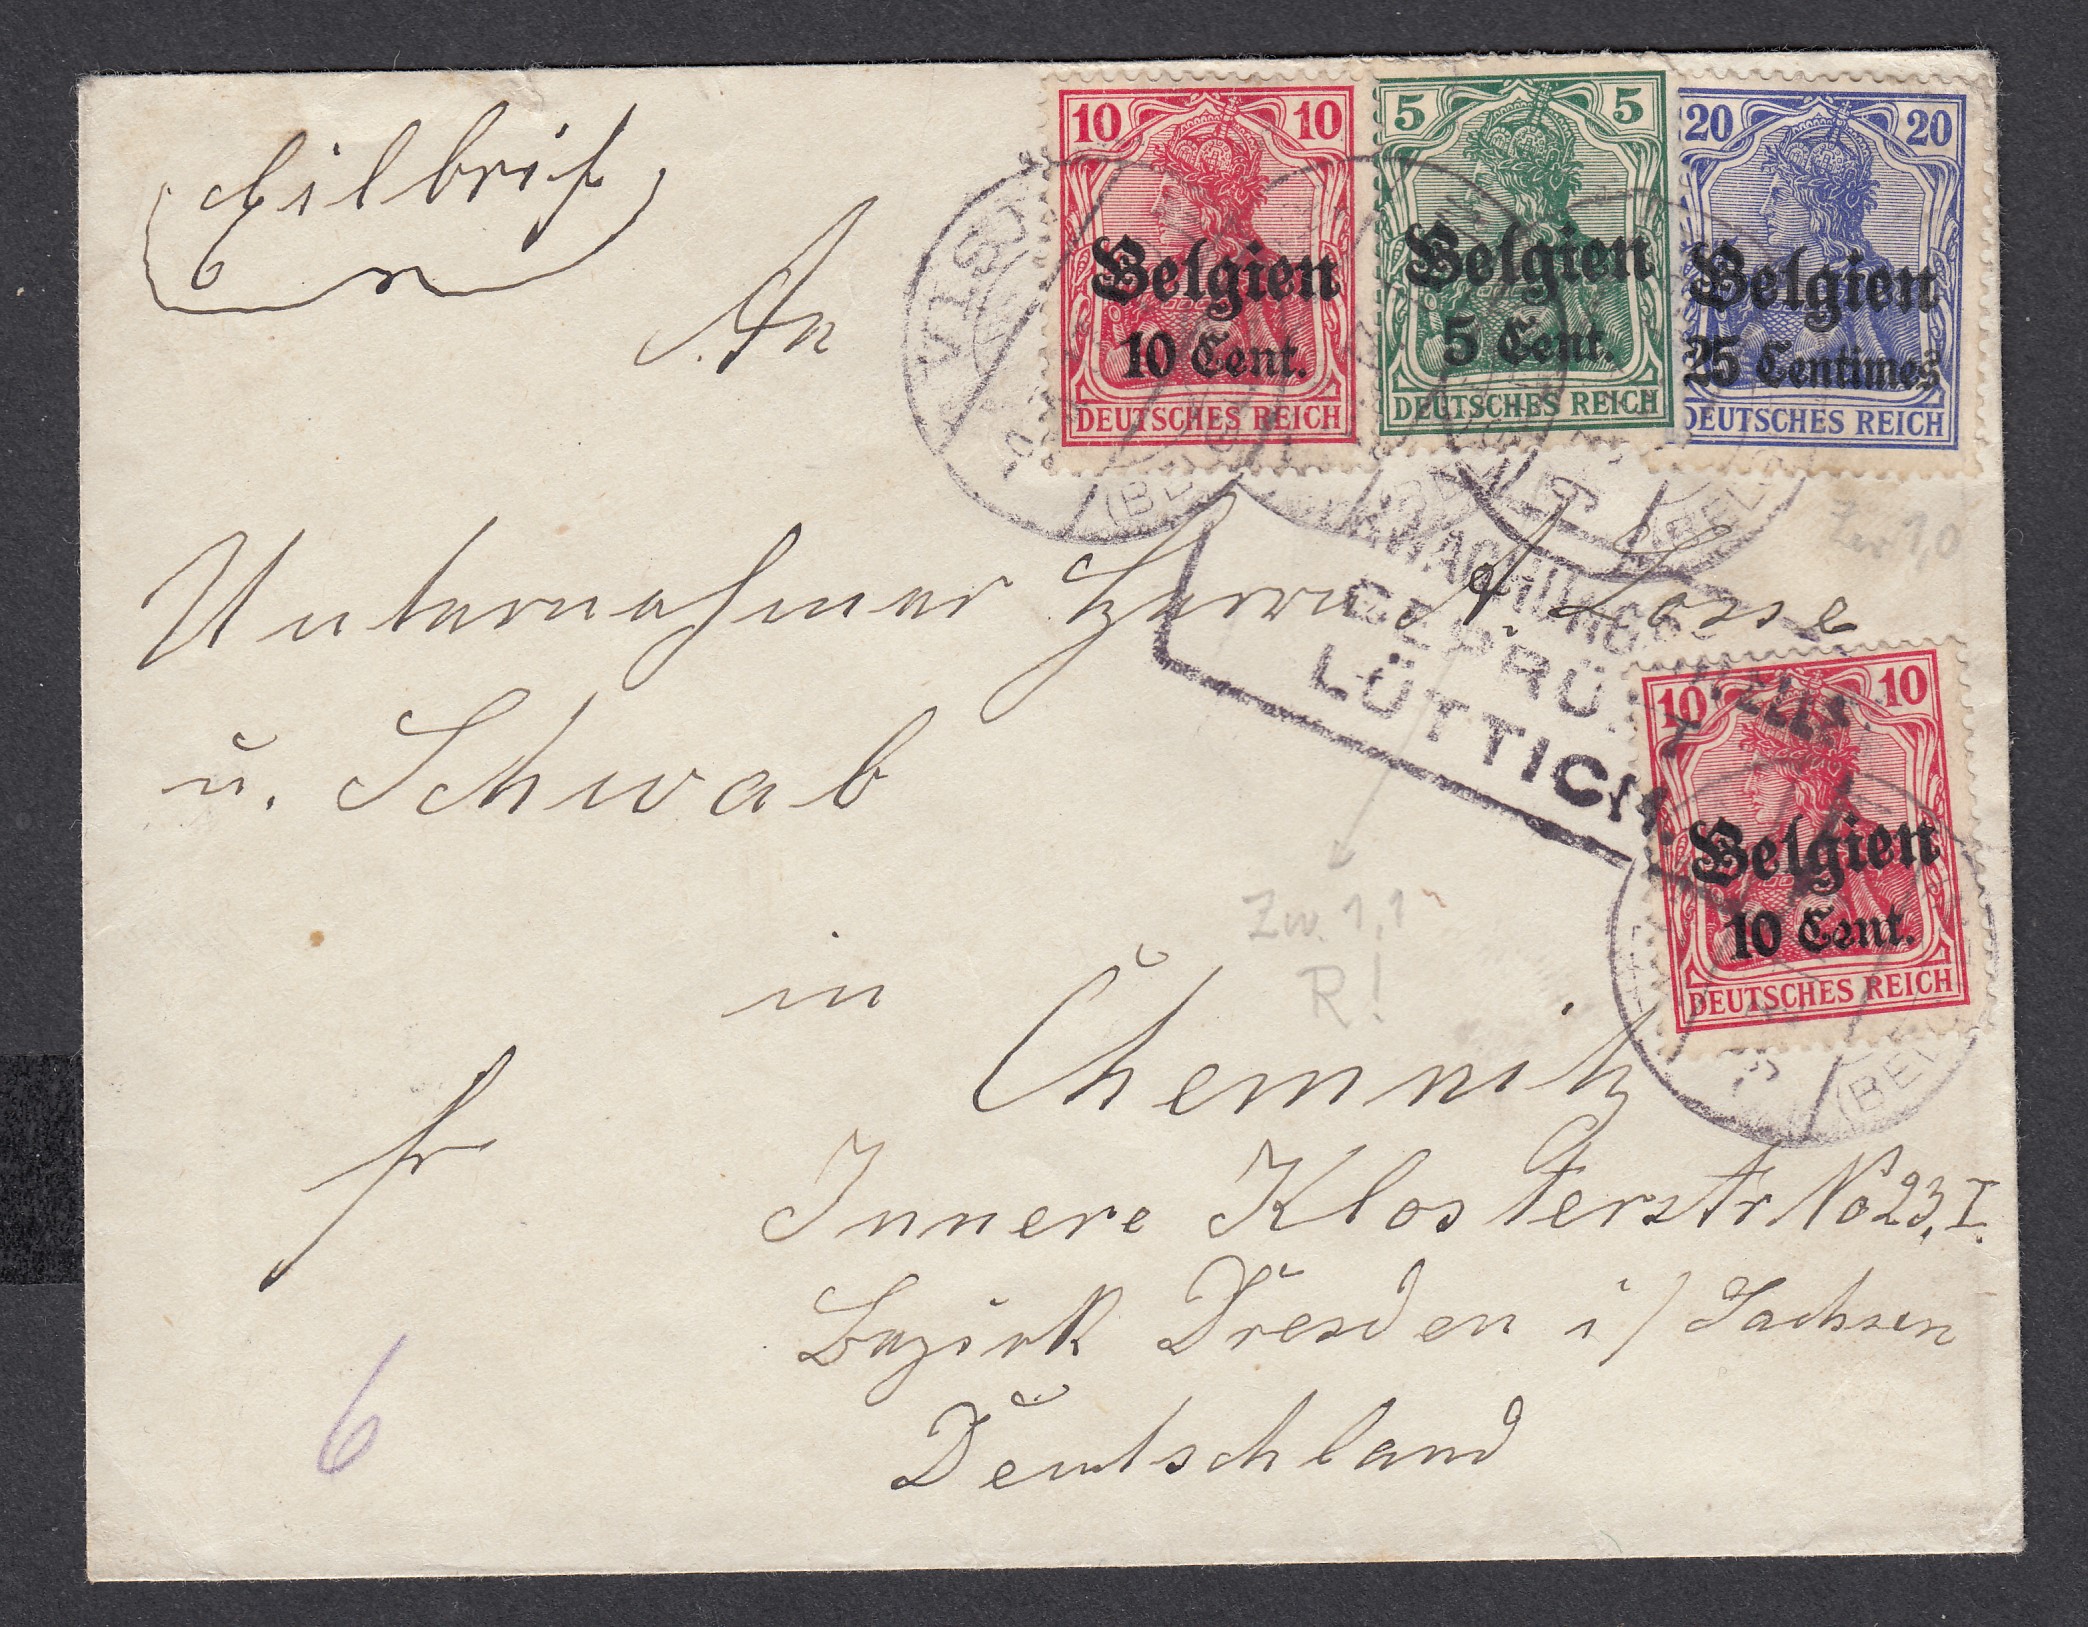 Eilbrief
An
10 10
Belgien
10 Cent.
DEUTSCHES REICH
5 5
Belgien
5 Cent.
DEUTSCHES REICH
20 20
Belgien
25 Centimes
DEUTSCHES REICH
VISÉ
(BELG
Zw 1,0
Unternehmer Herrn
u. Schwab
GEPRÜFT
LÜTTICH
10 10
Belgien
10 Cent.
DEUTSCHES REICH
(BEL
Zw. 1,1
R!
in
Chemnitz
fr
Innere Klosterstr No 23, I.
Bezirk Dresden i/ Sachsen
Deutschland
6